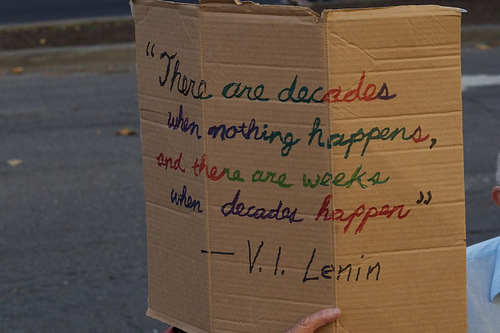 “There are decades
when nothing happens,
and there are weeks
when decades happen”
— V. I. Lenin